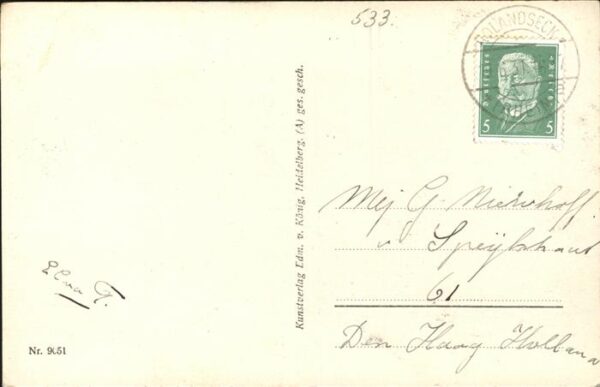 533.
5 5
Kunstverlag Edm. v. König, Heidelberg. (A) ges. gesch.
Mej G. Nierhoff.
v Speijkstraat
61
Den Haag Holland
G.
Nr. 9051